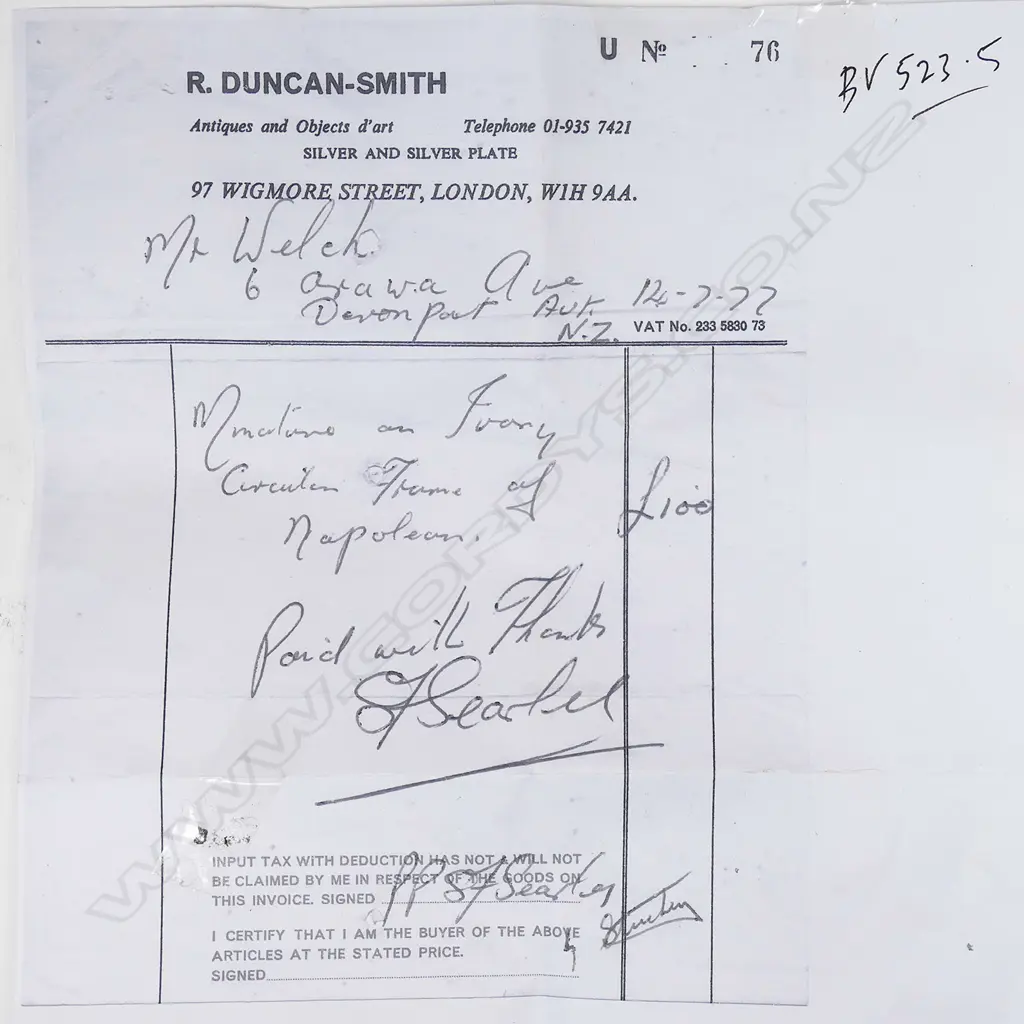 U Nº 76
BV 523.5
R. DUNCAN-SMITH
Antiques and Objects d'art Telephone 01-935 7421
SILVER AND SILVER PLATE
97 WIGMORE STREET, LONDON, W1H 9AA.
Mr Welch.
6 Arawa Ave
Devonport Auk. 12-7-77
N.Z. VAT No. 233 5830 73
Minature on Ivory
Circular Frame of £100
Napolean.
Paid with Thanks
INPUT TAX WITH DEDUCTION HAS NOT & WILL NOT
BE CLAIMED BY ME IN RESPECT OF THE GOODS ON
THIS INVOICE. SIGNED
I CERTIFY THAT I AM THE BUYER OF THE ABOVE
ARTICLES AT THE STATED PRICE.
SIGNED
WWW.CORDYS.CO.NZ